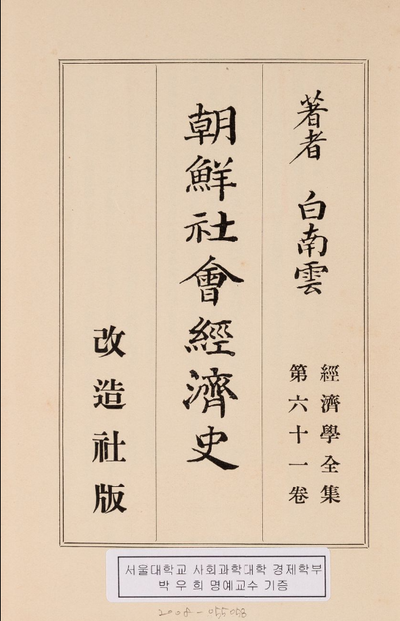 著者 白南雲
經濟學全集
第六十一卷
朝鮮社會經濟史
改造社版
서울대학교 사회과학대학 경제학부
박 우 희 명예교수 기증
2008-055058